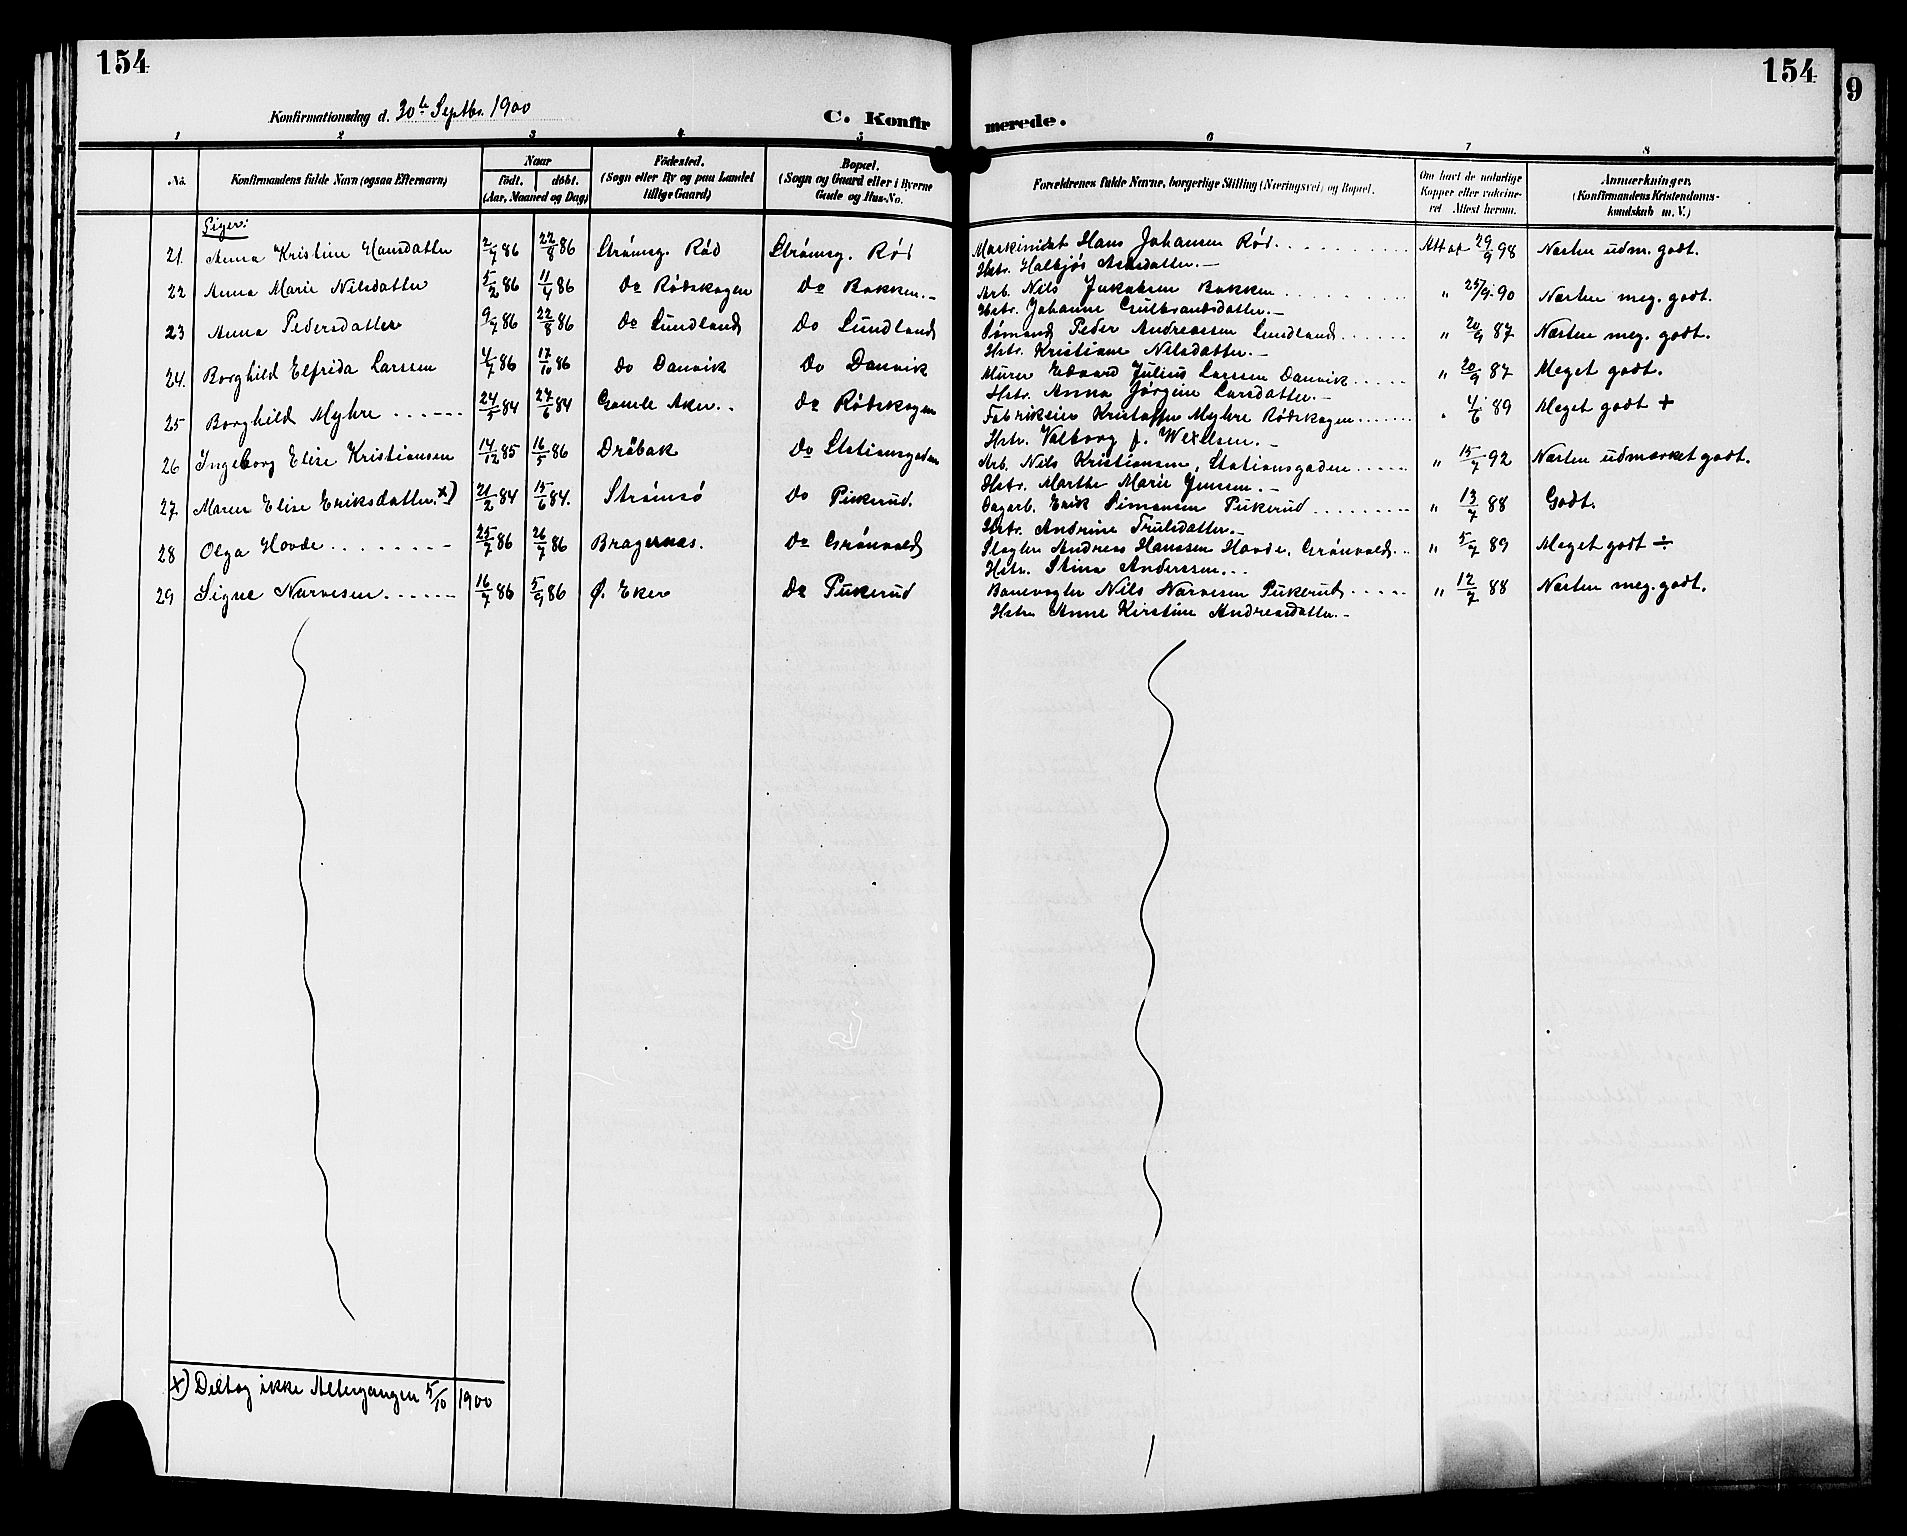 154
154
9
Konfirmationsdag d. 30te Septbr. 1900
C. Konfirmerede.
1 2 3 4 5 6 7 8
No. Konfirmandens fulde Navn (ogsaa Efternavn) Naar født. døbt. (Aar, Maaned og Dag) Fødested. (Sogn eller By og paa Landet tillige Gaard) Bopæl. (Sogn og Gaard eller i Byerne Gade og Hus-No. Forældrenes fulde Navne, borgerlige Stilling (Næringsvei) og Bopæl. Om havt de naturlige Kopper eller vakcineret. Attest herom. Anmærkninger. (Konfirmandens Kristendomskundskab m. V.)
Piger:
21. Anna Kristine Hansdatter 2/7 86 22/8 86 Strømsg. Rød Strømsg. Rød Maskinist Hans Johansen Rød. Att af 29/9 98 Næsten udm. godt.
Hstr. Halbjør Aslesdatter. —
22 Anna Marie Nilsdatter 5/2 86 11/4 86 Do Rødskogen Do Bakken. Arb. Nils Jakobsen Bakken " 25/9. 90 Næsten meg. godt.
Hstr. Johanne Gulbrandsdatter. —
23 Anna Pedersdatter 9/7 86 22/8 86 Do Lundland Do Lundland Sømand Peder Andreassen Lundland " 20/9 87 Næsten meg. godt.
Hstr. Kristiane Nilsdatter. —
24. Borghild Elfrida Larssen 4/7 86 17/10 86 Do Danvik Do Danvik Murer Edvard Julius Larssen Danvik " 20/9 87 Meget godt.
Hstr. Anna Jørgine Larsdatter. —
25 Borghild Myhre 24/5 84 27/6 84 Gamle Aker. Do Rødskogen Fabrikeier Kristoffer Myhre Rødskogen " 4/6 89 Meget godt +
Hstr. Valborg f. Wexelsen. —
26 Ingeborg Elise Kristiansen 14/12 85 16/5 86 Drøbak Do Stationsgaden Arb. Nils Kristiansen, Stationsgaden " 15/7 92 Næsten udmærket godt.
Hstr. Marthe Marie Jensen. —
27. Maren Elise Eriksdatter. x) 21/2 84 15/6 84. Strømsø Do Pukerud. Dagarb. Erik Simensen Pukerud " 13/7 88 Godt.
Hstr. Andrine Trulsdatter. —
28 Olga Hovde 25/7 86 26/7 86 Bragernæs. Do Grønvold Slagter Andreas Hanssen Hovde, Grønvold " 5/7 89 Meget godt ÷
Hstr. Stina Anderssen.
29 Signe Narvesen 16/7 86 5/9 86 Ø. Eker Do Pukerud Banevogter Nils Narvesen Pukerud " 12/7 88 Næsten meg. godt.
Hstr. Anne Kirstine Andreasdatter. —
x) Deltog ikke Altergangen 5/10 1900